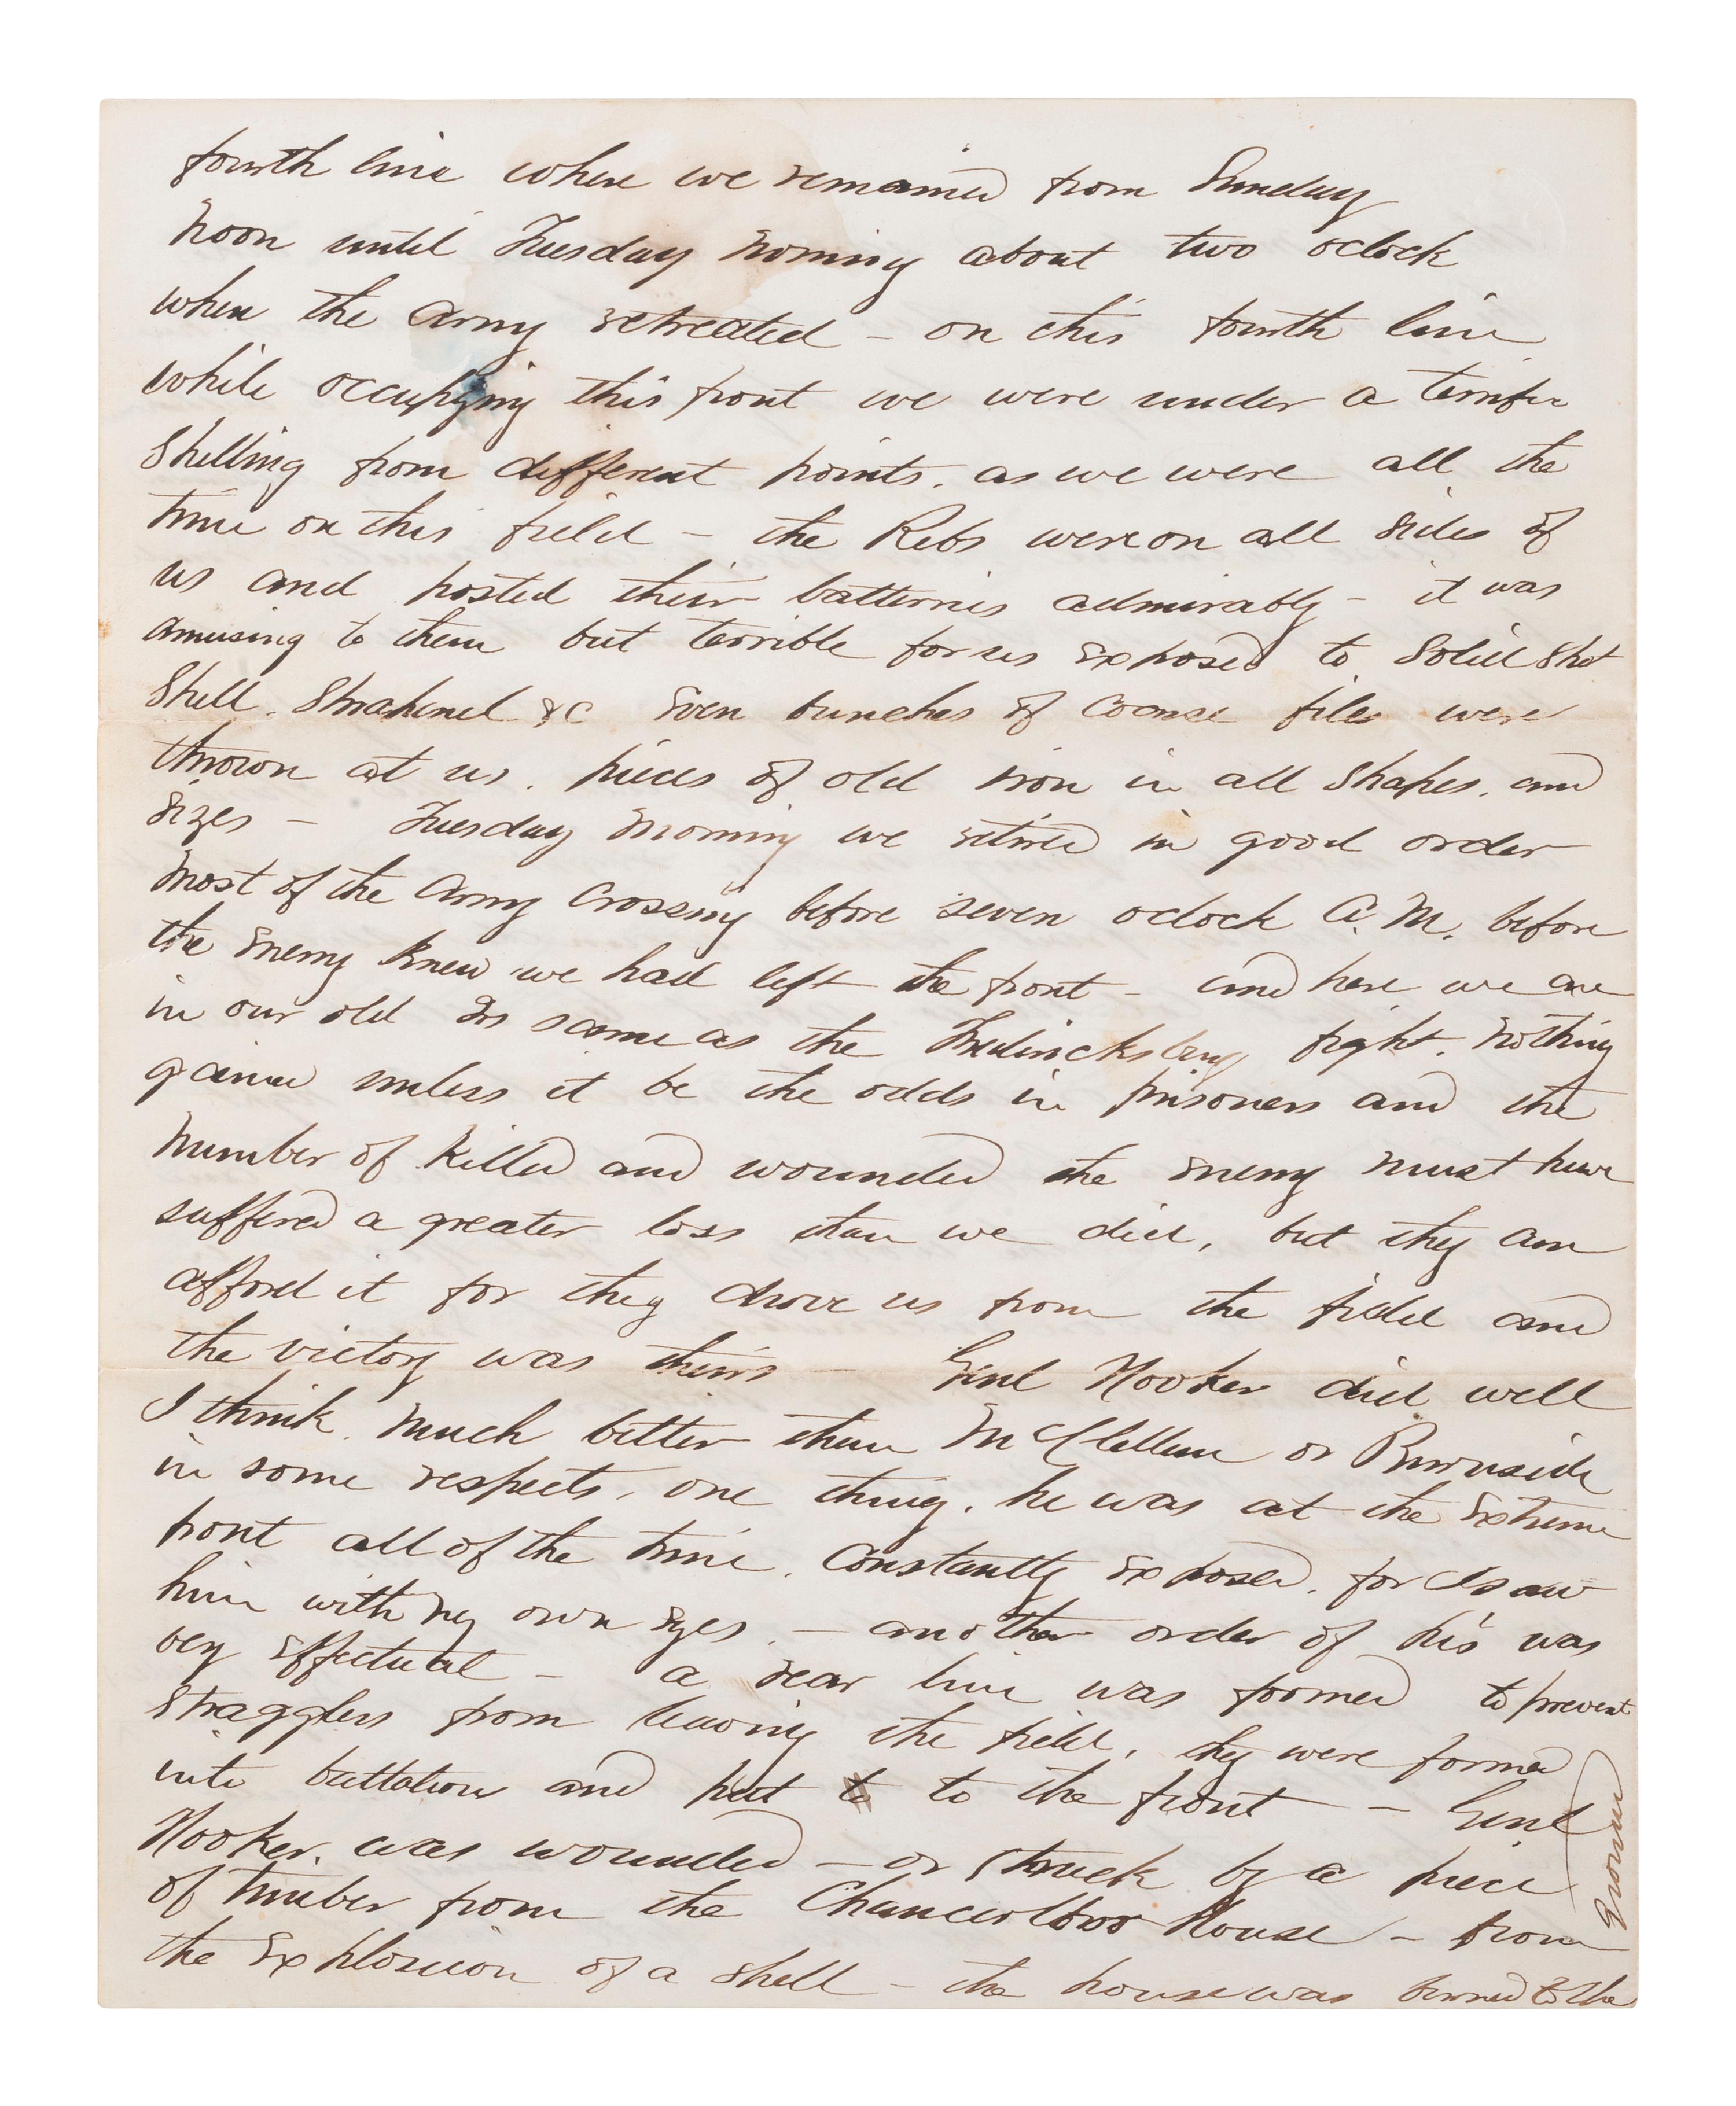 fourth line where we remained from Sunday
noon until Tuesday morning about two oclock
when the army retreated – on this fourth line
while occupying this front we were under a terrific
shelling from different points. as we were all the
time on this field – the Rebs were on all sides of
us and posted their batteries admirably – it was
amusing to them but terrible for us exposed to solid shot
shell. Shrapnel &c Even bunches of coarse files were
thrown at us. pieces of old iron in all shapes. and
sizes – Tuesday morning we retired in good order
most of the army crossing before seven oclock A.M. before
the enemy knew we had left the front – and here we are
in our old same as the Fredericksburg fight. nothing
gained unless it be the odds in prisoners and the
number of killed and wounded the enemy must have
suffered a greater loss than we did, but they can
afford it for they drove us from the field and
the victory was theirs – Genl Hooker did well
I think. much better than McClellan or Burnside
in some respects, one thing. he was at the extreme
front all of the time. Constantly exposed. for I saw
him with my own eyes. – another order of his was
very effectual – a rear line was formed to prevent
stragglers from leaving the field, they were formed
into battalions and put to to the front – Genl
Hooker. was wounded – or struck by a piece
of timber from the Chancerlloor House – from
the explosion of a shell – the house was burned to the
ground